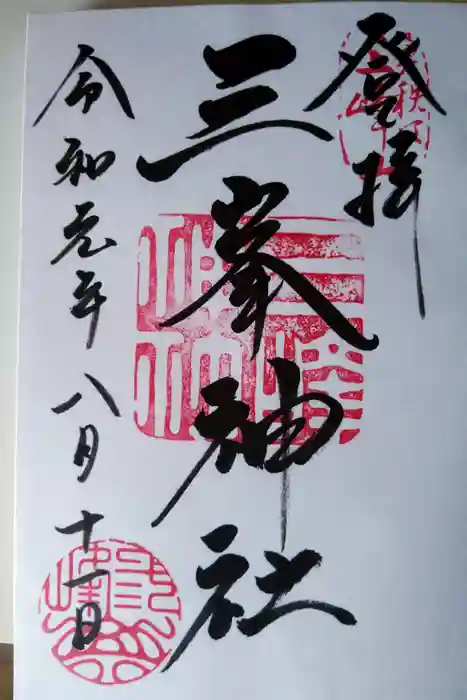 登拝
三峯神社
令和元年八月十一日